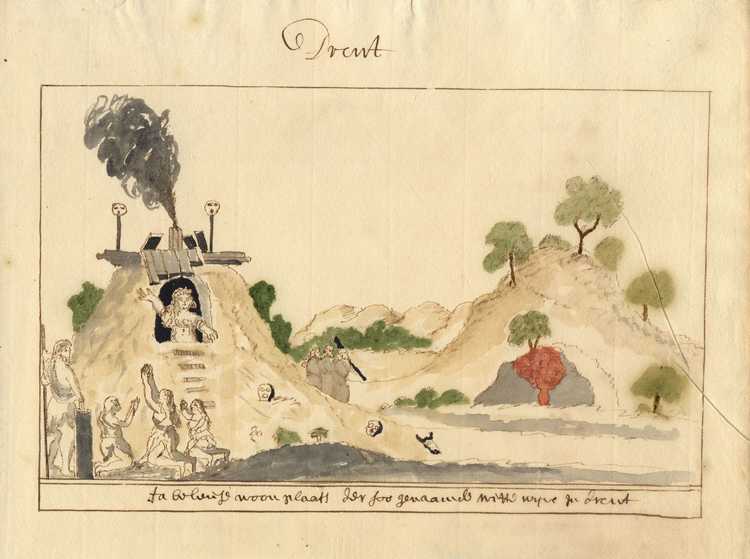 Drent
fabeleuse woon plaats der soo genaamde witte wyve in drent